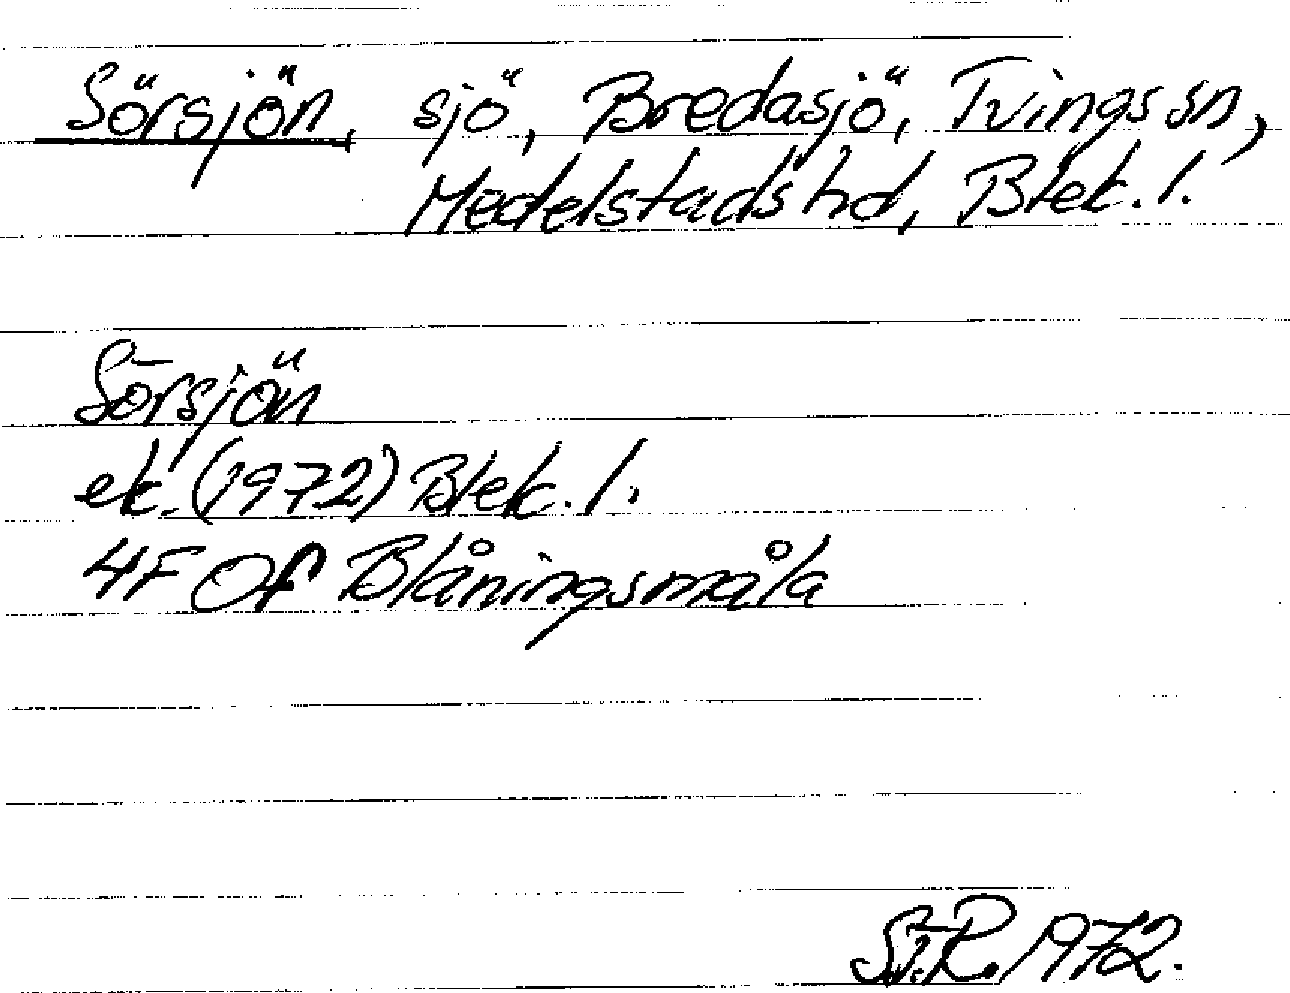 Sörsjön, sjö, Bredasjö, Tvings sn,
Medelstads hd, Blek. l.
Sörsjön
ek. (1972) Blek. l.
4F Of Blåningsmåla
St.R. 1972.